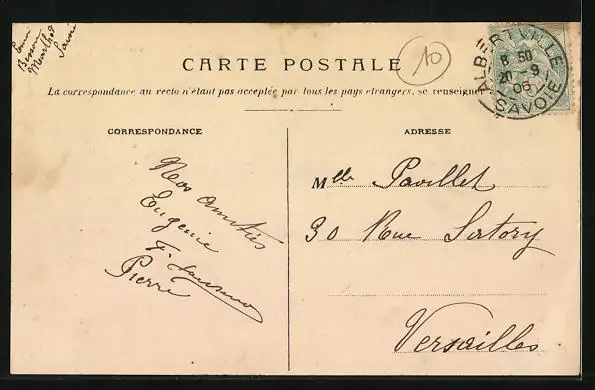 CARTE POSTALE
10
ALBERTVILLE
8 50
20 - 9
06
SAVOIE
La correspondance au recto n'étant pas acceptée par tous les pays étrangers, se renseigner
CORRESPONDANCE
Nos amitiés
Eugenie
Pierre
ADRESSE
Mlle Pavillet
30 Rue Satory
Versailles